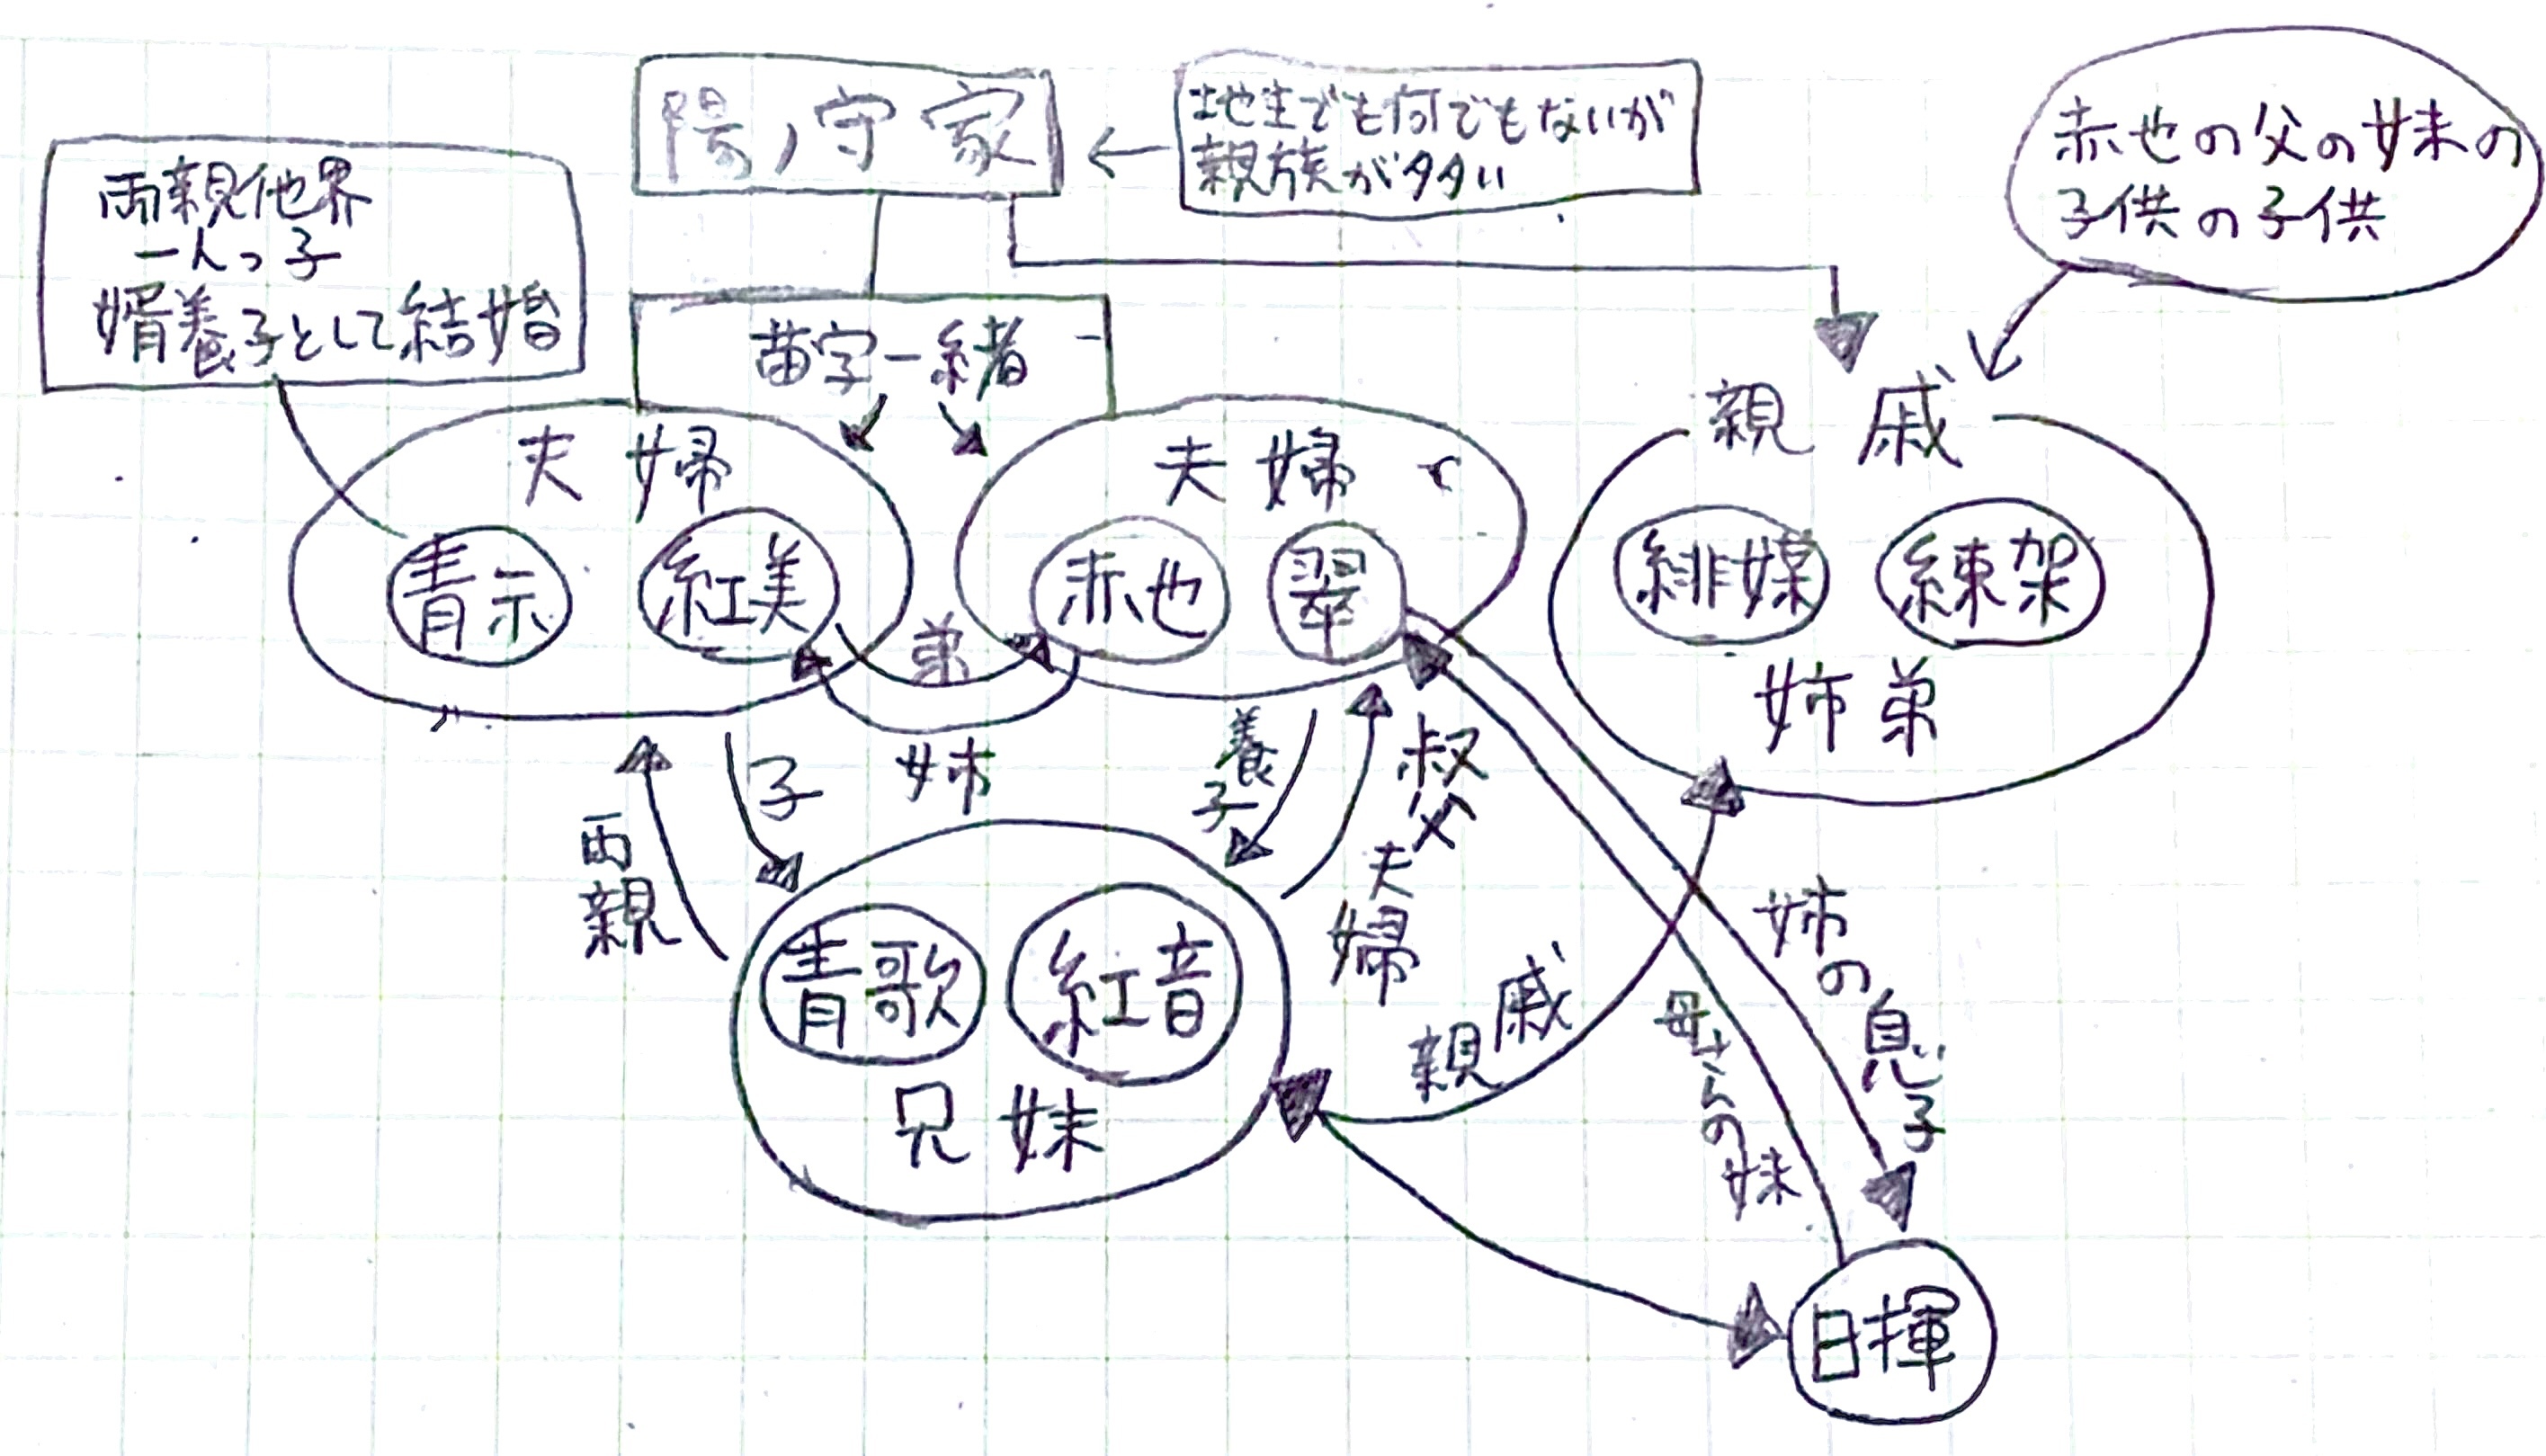 陽ノ守家
地主でも何でもないが
親族が多い
赤也の父の妹の
子供の子供
両親他界
一人っ子
婿養子として結婚
苗字一緒
夫婦
青示
紅美
夫婦
赤也
翠
親戚
緋媒
練架
姉弟
弟
姉
子
両親
養子
叔父夫婦
青歌
紅音
兄妹
親戚
姉の息子
母さんの妹
日揮